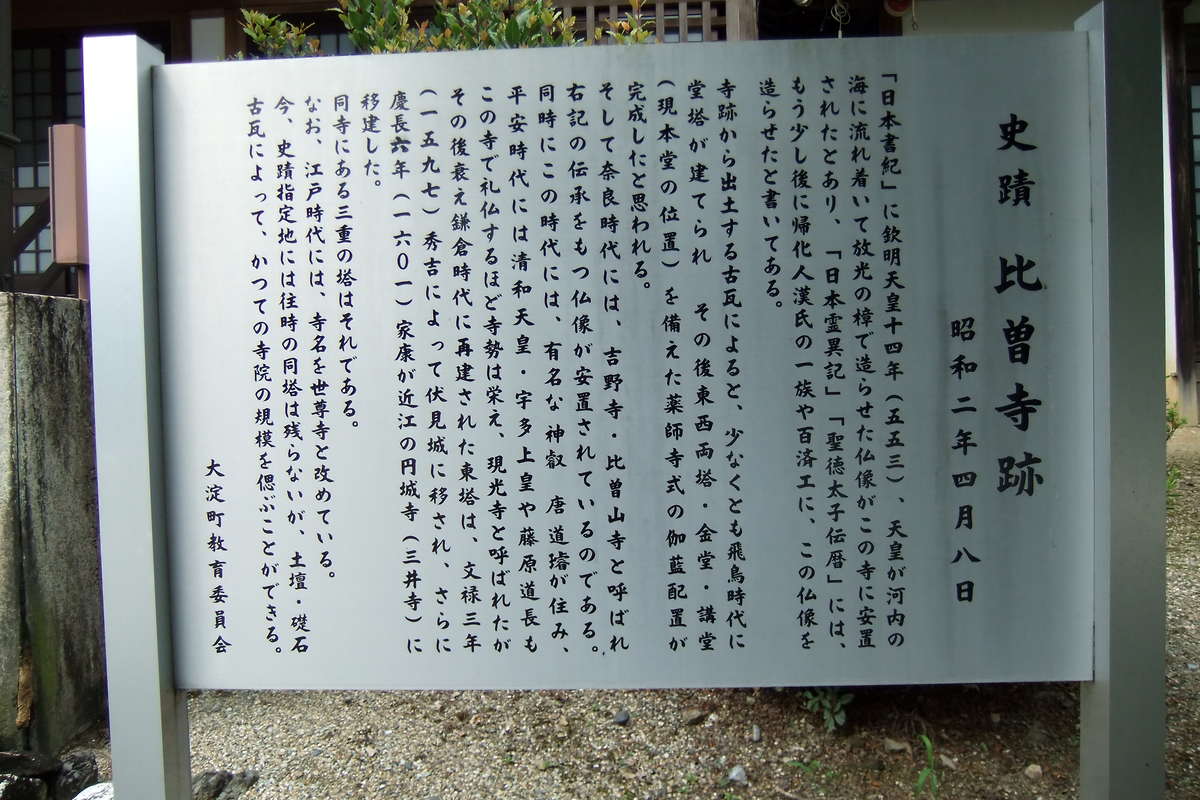 史蹟 比曽寺跡
昭和二年四月八日
「日本書紀」に欽明天皇十四年(五五三)、天皇が河内の
海に流れ着いて放光の樟で造らせた仏像がこの寺に安置
されたとあり、「日本霊異記」「聖徳太子伝暦」には、
もう少し後に帰化人漢氏の一族や百済工に、この仏像を
造らせたと書いてある。
寺跡から出土する古瓦によると、少なくとも飛鳥時代に
堂塔が建てられ その後東西両塔・金堂・講堂
(現本堂の位置)を備えた薬師寺式の伽藍配置が
完成したと思われる。
そして奈良時代には、吉野寺・比曽山寺と呼ばれ
右記の伝承をもつ仏像が安置されているのである。
同時にこの時代には、有名な神叡 唐道璿が住み、
平安時代には清和天皇・宇多上皇や藤原道長も
この寺で礼仏するほど寺勢は栄え、現光寺と呼ばれたが
その後衰え鎌倉時代に再建された東塔は、文禄三年
(一五九七)秀吉によって伏見城に移され、さらに
慶長六年(一六〇一)家康が近江の円城寺(三井寺)に
移建した。
同寺にある三重の塔はそれである。
なお、江戸時代には、寺名を世尊寺と改めている。
今、史蹟指定地には往時の同塔は残らないが、土壇・礎石
古瓦によって、かつての寺院の規模を偲ぶことができる。
大淀町教育委員会